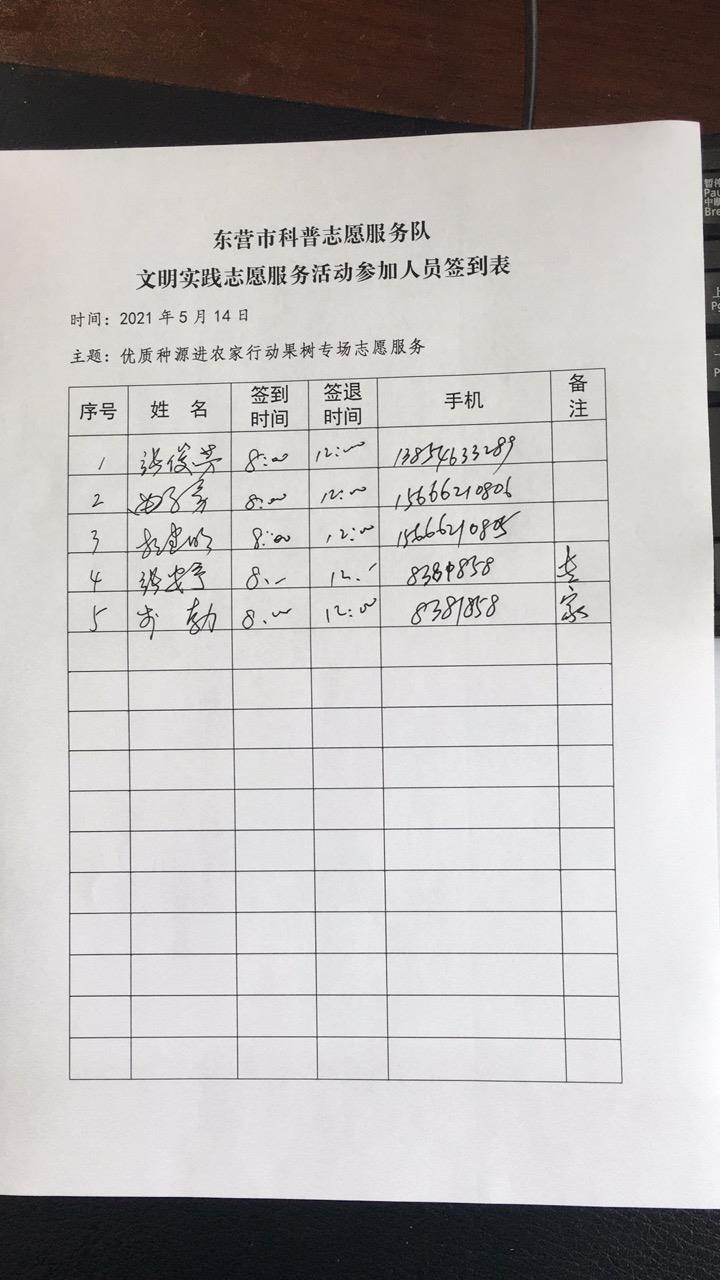 东营市科普志愿服务队
文明实践志愿服务活动参加人员签到表
时间：2021 年 5 月 14 日
主题：优质种源进农家行动果树专场志愿服务
序号 姓 名 签到时间 签退时间 手机 备注
1 张俊芳 8:00 12:00 13854633289
2 8:00 12:00 15666210806
3 8:00 12:00 15666210805
4 张安宁 8:- 12:- 8381858 专
5 勃 8:00 12:00 8381858 家
暂停
Pau
中断
Bre
上
Pg